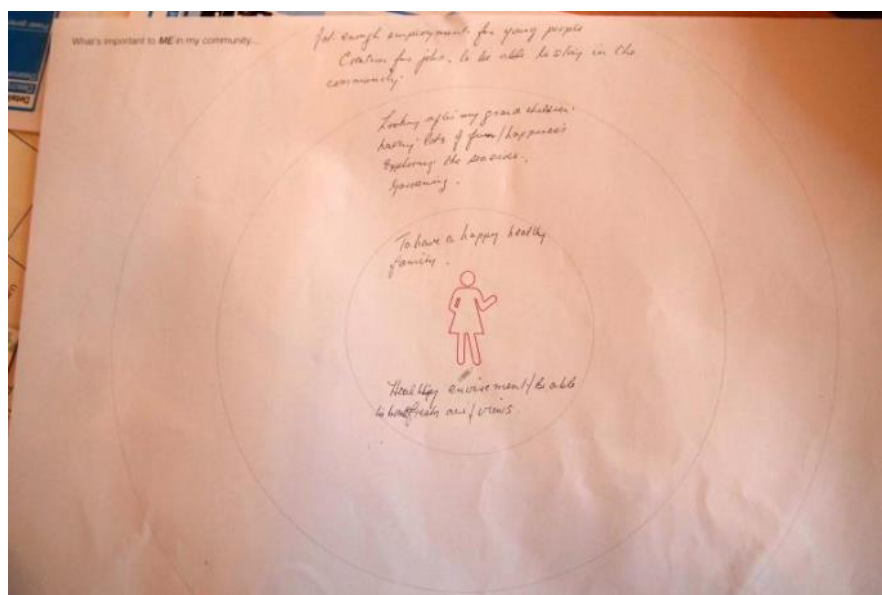 What's important to ME in my community...
enough employment for young people
Creation for jobs, to be able to stay in the
community.
Looking after my grand children.
having lots of fun/happiness
Exploring the seaside.
To have a happy healthy
family.
Healthy envirement/be able
to have fresh air/views.